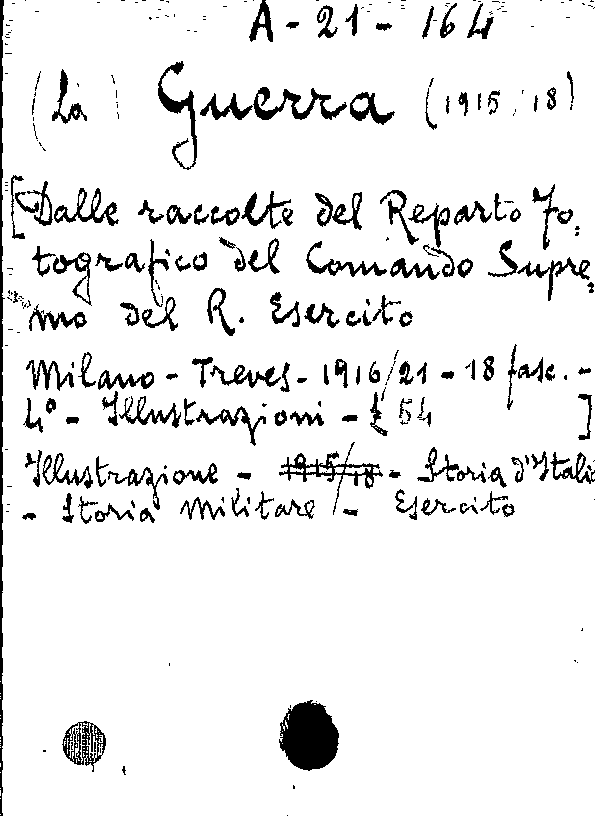 A - 21 - 164
(La) Guerra (1915/18)
[Dalle raccolte del Reparto Fo-
tografico del Comando Supre-
mo del R. Esercito
Milano - Treves - 1916/21 - 18 fasc. -
4º - Illustrazioni - £ 54 ]
Illustrazione - 1915/18 - Storia d'Itali
- Storia Militare - Esercito